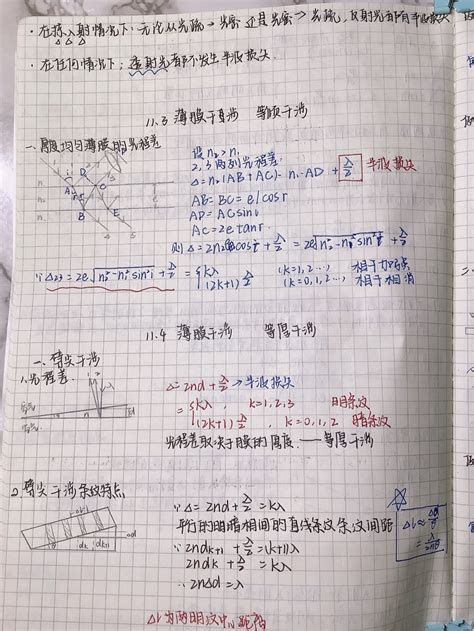 ·在掠入射情况下,无论从光疏→光密还是光密→光疏,反射光都有半波损失
·在任何情况下,透射光都不发生半波损失.
11.3 薄膜干涉 等倾干涉
一、厚度均匀薄膜的光程差
设n₂>n₁
2,3两列光程差:
Δ=n₂(AB+AC)-n₁·AD+λ/2 半波损失
AB=BC=e/cosr
AD=ACsini
AC=2etanr
则Δ=2n₂ecosr+λ/2=2e√n₂²-n₁²sin²i+λ/2
∵Δ23=2e√n₂²-n₁²sin²i+λ/2={kλ (k=1,2…, 相干加强
(2k+1)λ/2 (k=0,1,2…, 相干相消
11.4 薄膜干涉 等厚干涉
一、劈尖干涉
1.光程差
Δ=2nd+λ/2→半波损失
={kλ, k=1,2,3 明条纹
(2k+1)λ/2, k=0,1,2 暗条纹
光程差取决于膜的厚度.——等厚干涉
2.劈尖干涉条纹特点
∵Δ=2nd+λ/2=kλ
平行的明暗相间的直线条纹,条纹间距
∵2ndk+1+λ/2=(k+1)λ
2ndk+λ/2=kλ
∴2nΔd=λ
Δl≈Δd/θ
=λ/2nθ
Δl为两明纹中心距离